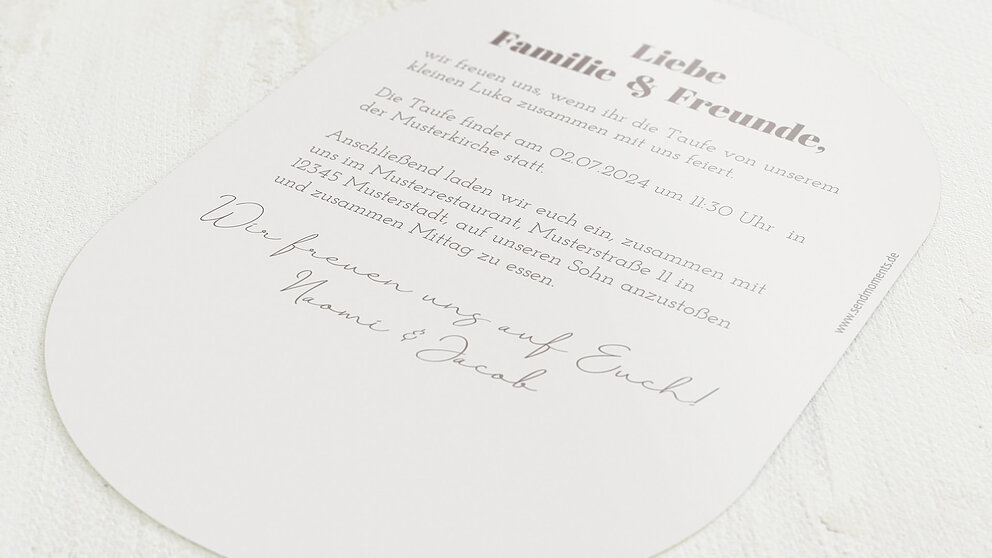 Liebe
Familie & Freunde,
wir freuen uns, wenn ihr die Taufe von unserem
kleinen Luka zusammen mit uns feiert.
Die Taufe findet am 02.07.2024 um 11:30 Uhr in
der Musterkirche statt.
Anschließend laden wir euch ein, zusammen mit
uns im Musterrestaurant, Musterstraße 11 in
12345 Musterstadt, auf unseren Sohn anzustoßen
und zusammen Mittag zu essen.
Wir freuen uns auf Euch!
Naomi & Jacob
www.sendmoments.de